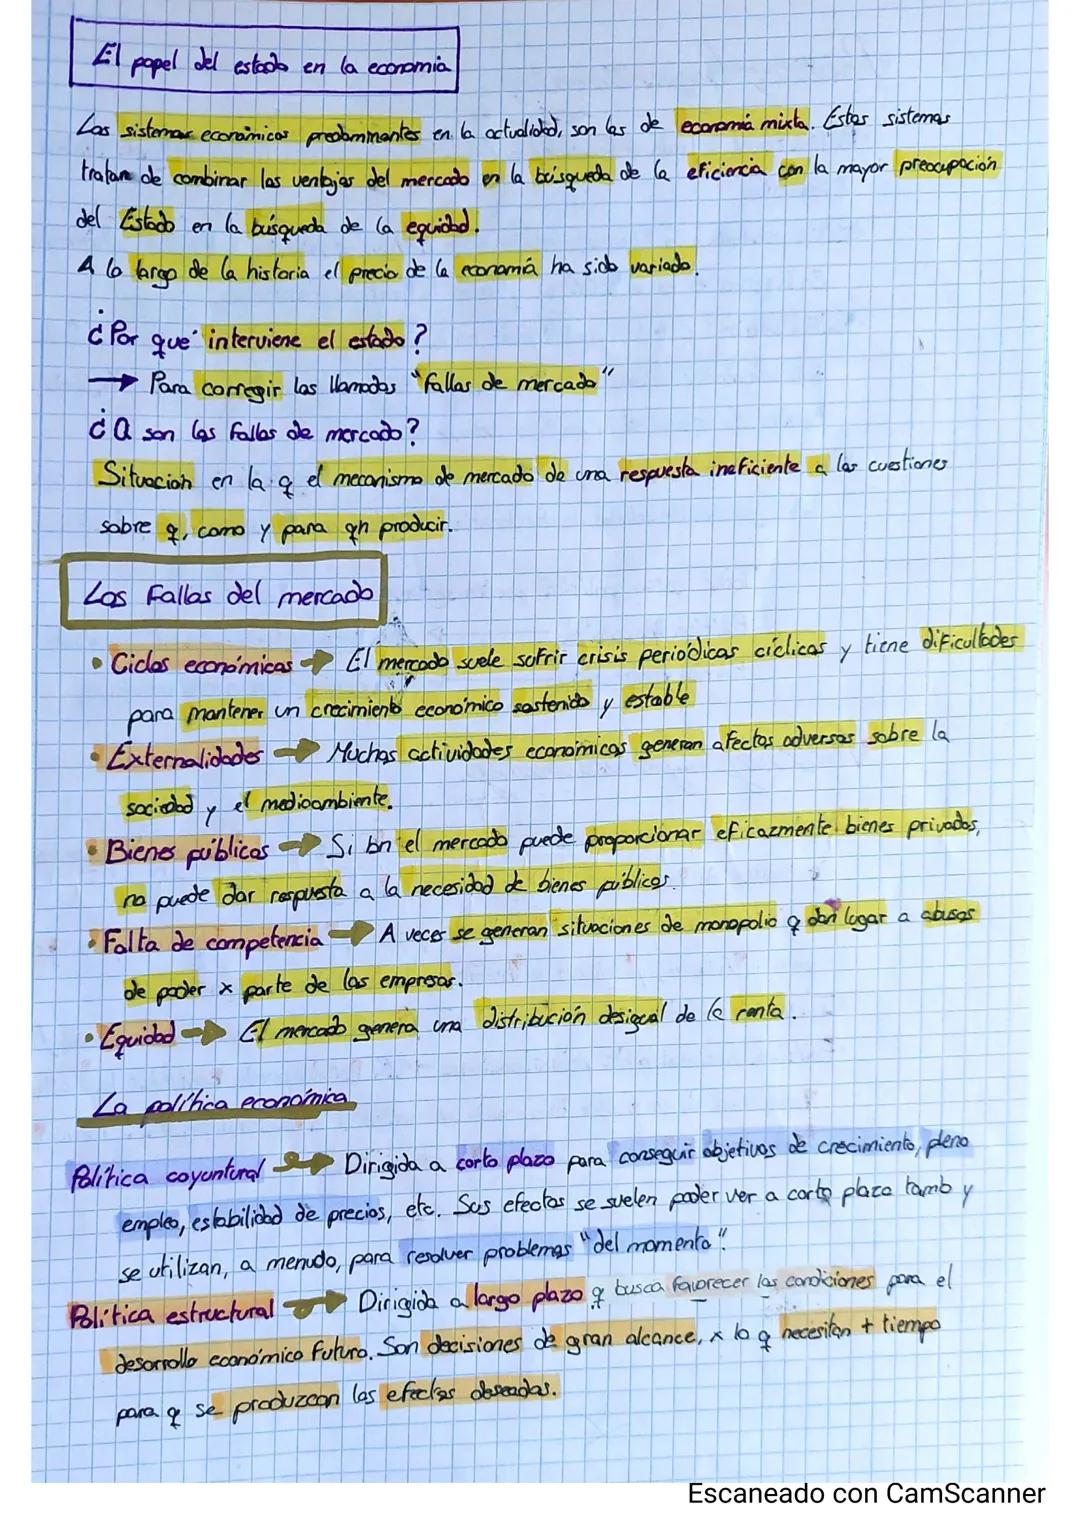 El papel del estado en la economía
Los sistemas económicos predominantes en la actualidad, son los de economía mixta. Estos sistemas
tratan de combinar las ventajas del mercado en la búsqueda de la eficiencia con la mayor preocupación
del Estado en la búsqueda de la equidad.
A lo largo de la historia el precio de la economía ha sido variado.
¿Por qué interviene el estado?
→ Para corregir los llamados "fallos de mercado"
¿Q son los fallos de mercado?
Situación en la q el mecanismo de mercado de una respuesta ineficiente a las cuestiones
sobre q, como y para qn producir.
Los Fallos del mercado
• Ciclos económicos → El mercado suele sufrir crisis periódicas cíclicas y tiene dificultades
para mantener un crecimiento económico sostenido y estable
• Externalidades → Muchas actividades económicas generan afectos adversos sobre la
sociedad y el medioambiente.
• Bienes públicos → Si bn el mercado puede proporcionar eficazmente bienes privados,
no puede dar respuesta a la necesidad de bienes públicos.
• Falta de competencia → A veces se generan situaciones de monopolio q dan lugar a abusos
de poder x parte de las empresas.
• Equidad → El mercado genera una distribución desigual de la renta.
La política económica
Política coyuntural → Dirigida a corto plazo para conseguir objetivos de crecimiento, pleno
empleo, estabilidad de precios, etc. Sus efectos se suelen poder ver a corto plazo tamb y
se utilizan, a menudo, para resolver problemas "del momento".
Política estructural → Dirigida a largo plazo q busca favorecer las condiciones para el
desarrollo económico futuro. Son decisiones de gran alcance, x lo q necesitan + tiempo
para q se produzcan los efectos deseados.
Escaneado con CamScanner